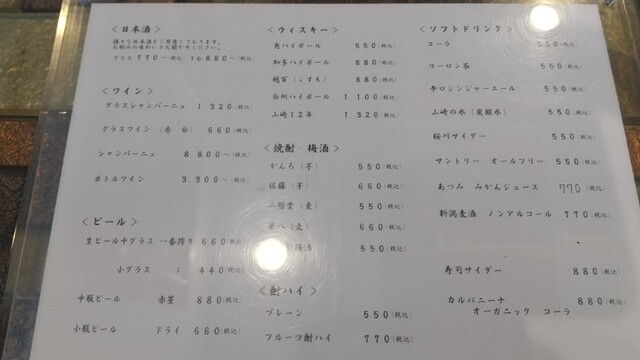 <日本酒>
グラス 770〜(税込) 1合 880〜(税込)
<ワイン>
グラスシャンパーニュ 1,320(税込)
グラスワイン (赤 白) 660(税込)
シャンパーニュ 8,800〜(税込)
ボトルワイン 3,300〜(税込)
<ビール>
生ビール中グラス 一番搾り 660(税込)
小グラス 440(税込)
中瓶ビール 赤星 880(税込)
小瓶ビール ドライ 660(税込)
<ウィスキー>
角ハイボール 550(税込)
知多ハイボール 880(税込)
越百(こすも) 880(税込)
白州ハイボール 1,100(税込)
山崎12年 1,320(税込)
<焼酎 梅酒>
かんろ(芋) 550(税込)
佐藤(芋) 660(税込)
二階堂(麦) 550(税込)
(麦) 660(税込)
梅酒 550(税込)
<酎ハイ>
プレーン 550(税込)
フルーツ酎ハイ 770(税込)
<ソフトドリンク>
コーラ 550(税込)
ウーロン茶 550(税込)
辛口ジンジャーエール 550(税込)
山崎の水(炭酸水) 550(税込)
桜川サイダー 550(税込)
サントリー オールフリー 550(税込)
あつみ みかんジュース 770(税込)
新潟麦酒 ノンアルコール 770(税込)
寿司サイダー 880(税込)
カルバニーナ 880(税込)
オーガニック コーラ